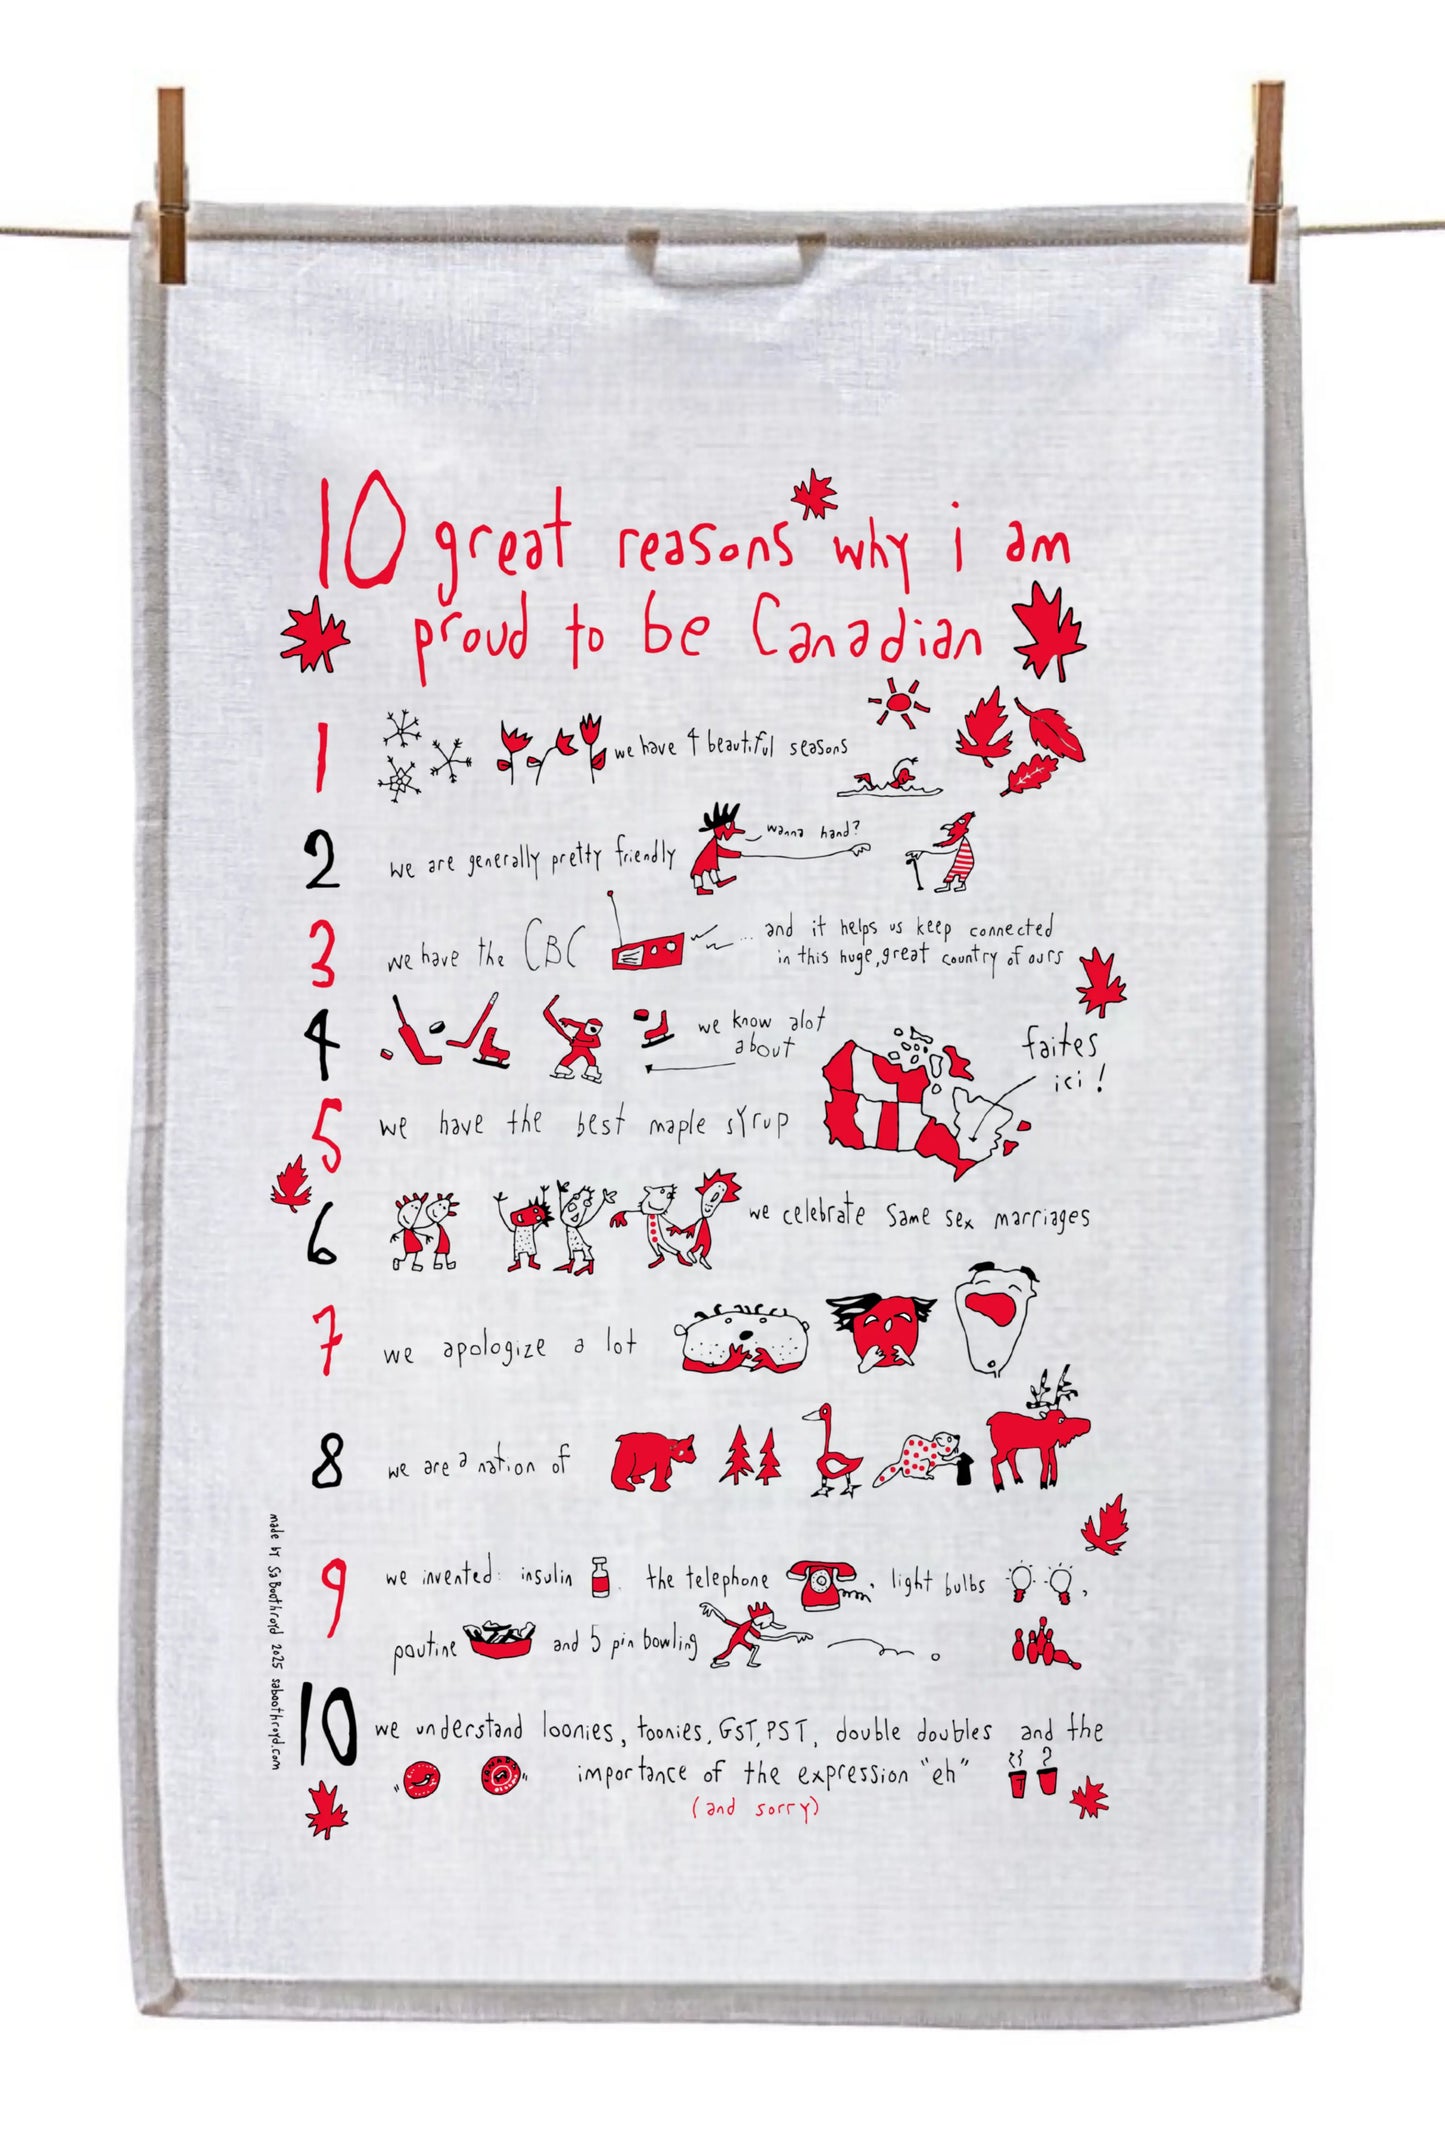 10 great reasons why i am
proud to be Canadian
1 we have 4 beautiful seasons
2 we are generally pretty friendly
wanna hand?
3 we have the CBC ... and it helps us keep connected
in this huge, great country of ours
4 we know alot
about
faites
ici !
5 we have the best maple syrup
6 we celebrate same sex marriages
7 we apologize a lot
8 we are a nation of
9 we invented: insulin, the telephone, light bulbs,
poutine and 5 pin bowling
10 we understand loonies, toonies, GST, PST, double doubles and the
importance of the expression "eh"
(and sorry)
made by SaBoothroyd 2025 saboothroyd.com